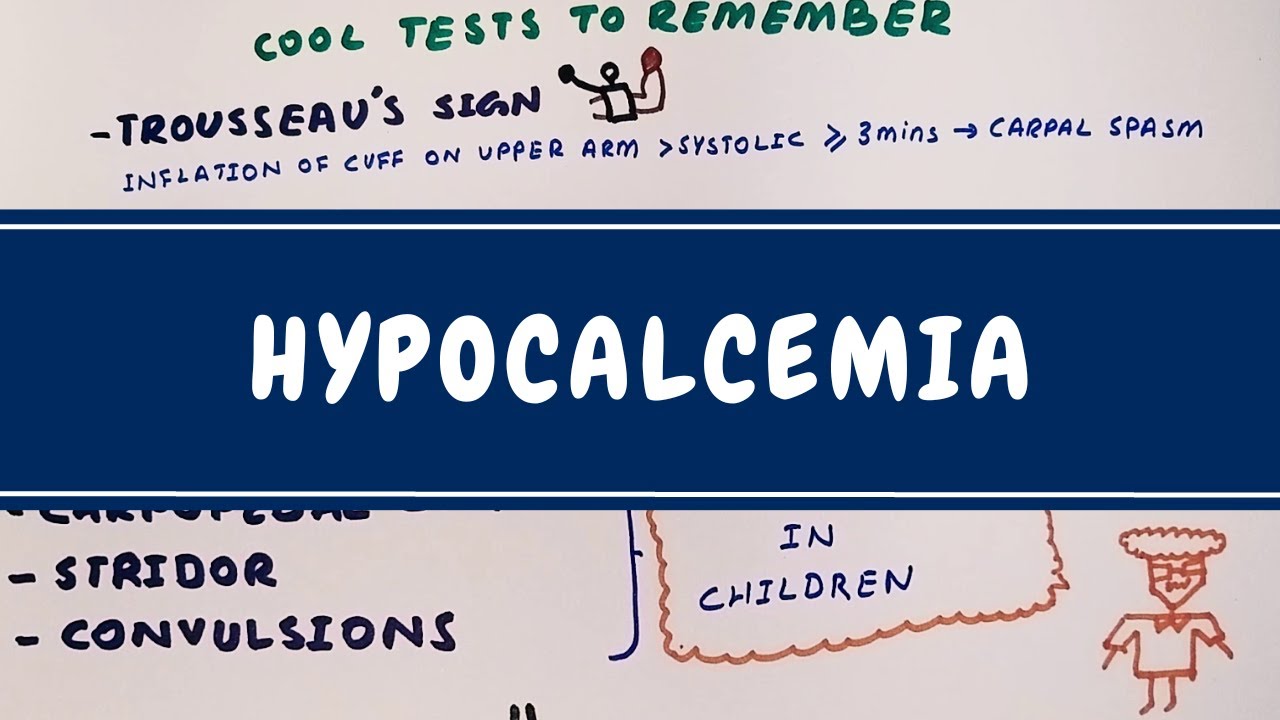 COOL TESTS TO REMEMBER
-TROUSSEAU'S SIGN
INFLATION OF CUFF ON UPPER ARM >SYSTOLIC ⩾ 3mins → CARPAL SPASM
HYPOCALCEMIA
- STRIDOR
- CONVULSIONS
IN
CHILDREN